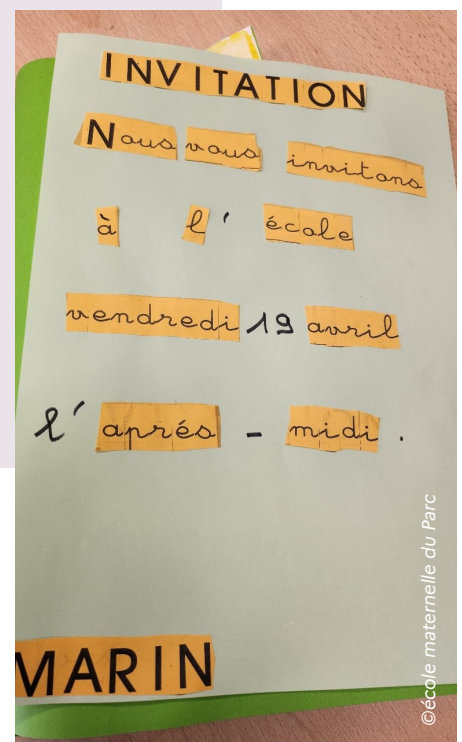 INVITATION
Nous vous invitons
à l' école
vendredi 19 avril
l' aprés - midi .
MARIN
©école maternelle du Parc